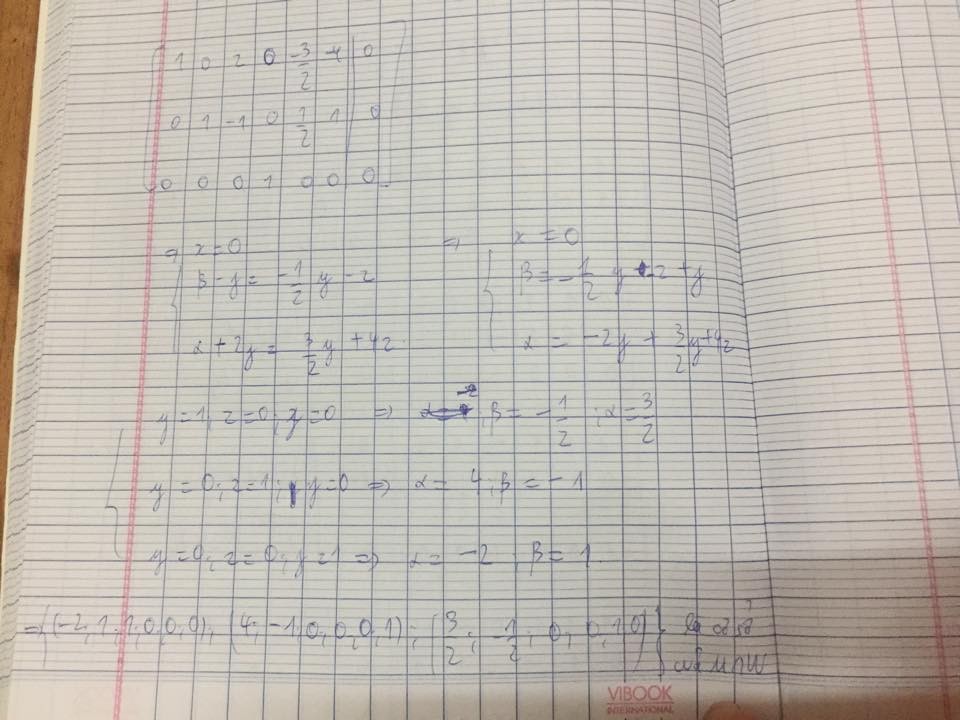 1 0 2 0 -3/2 -4 | 0
0 1 -1 0 1/2 1 | 0
0 0 0 1 0 0 | 0
⇒ x = 0 ⇒ x = 0
β - γ = -1/2 y - z β = -1/2 y - z + γ
α + 2γ = 3/2 y + 4z α = -2γ + 3/2 y + 4z
y = 1; z = 0; γ = 0 ⇒ β = -1/2; α = 3/2
y = 0; z = 1; γ = 0 ⇒ α = 4; β = -1
y = 0; z = 0; γ = 1 ⇒ α = -2, β = 1
⇒ {(-2, 1, 1, 0, 0, 0); (4; -1, 0, 0, 0, 1); (3/2; -1/2; 0, 0, 1, 0)} là cơ sở
của U∩W
VIBOOK
INTERNATIONAL